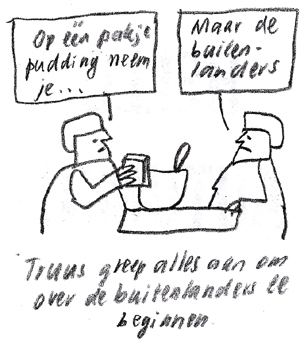 Op één pakje
pudding neem
je...
Maar de
buiten-
landers
Truus greep alles aan om
over de buitenlanders te
beginnen